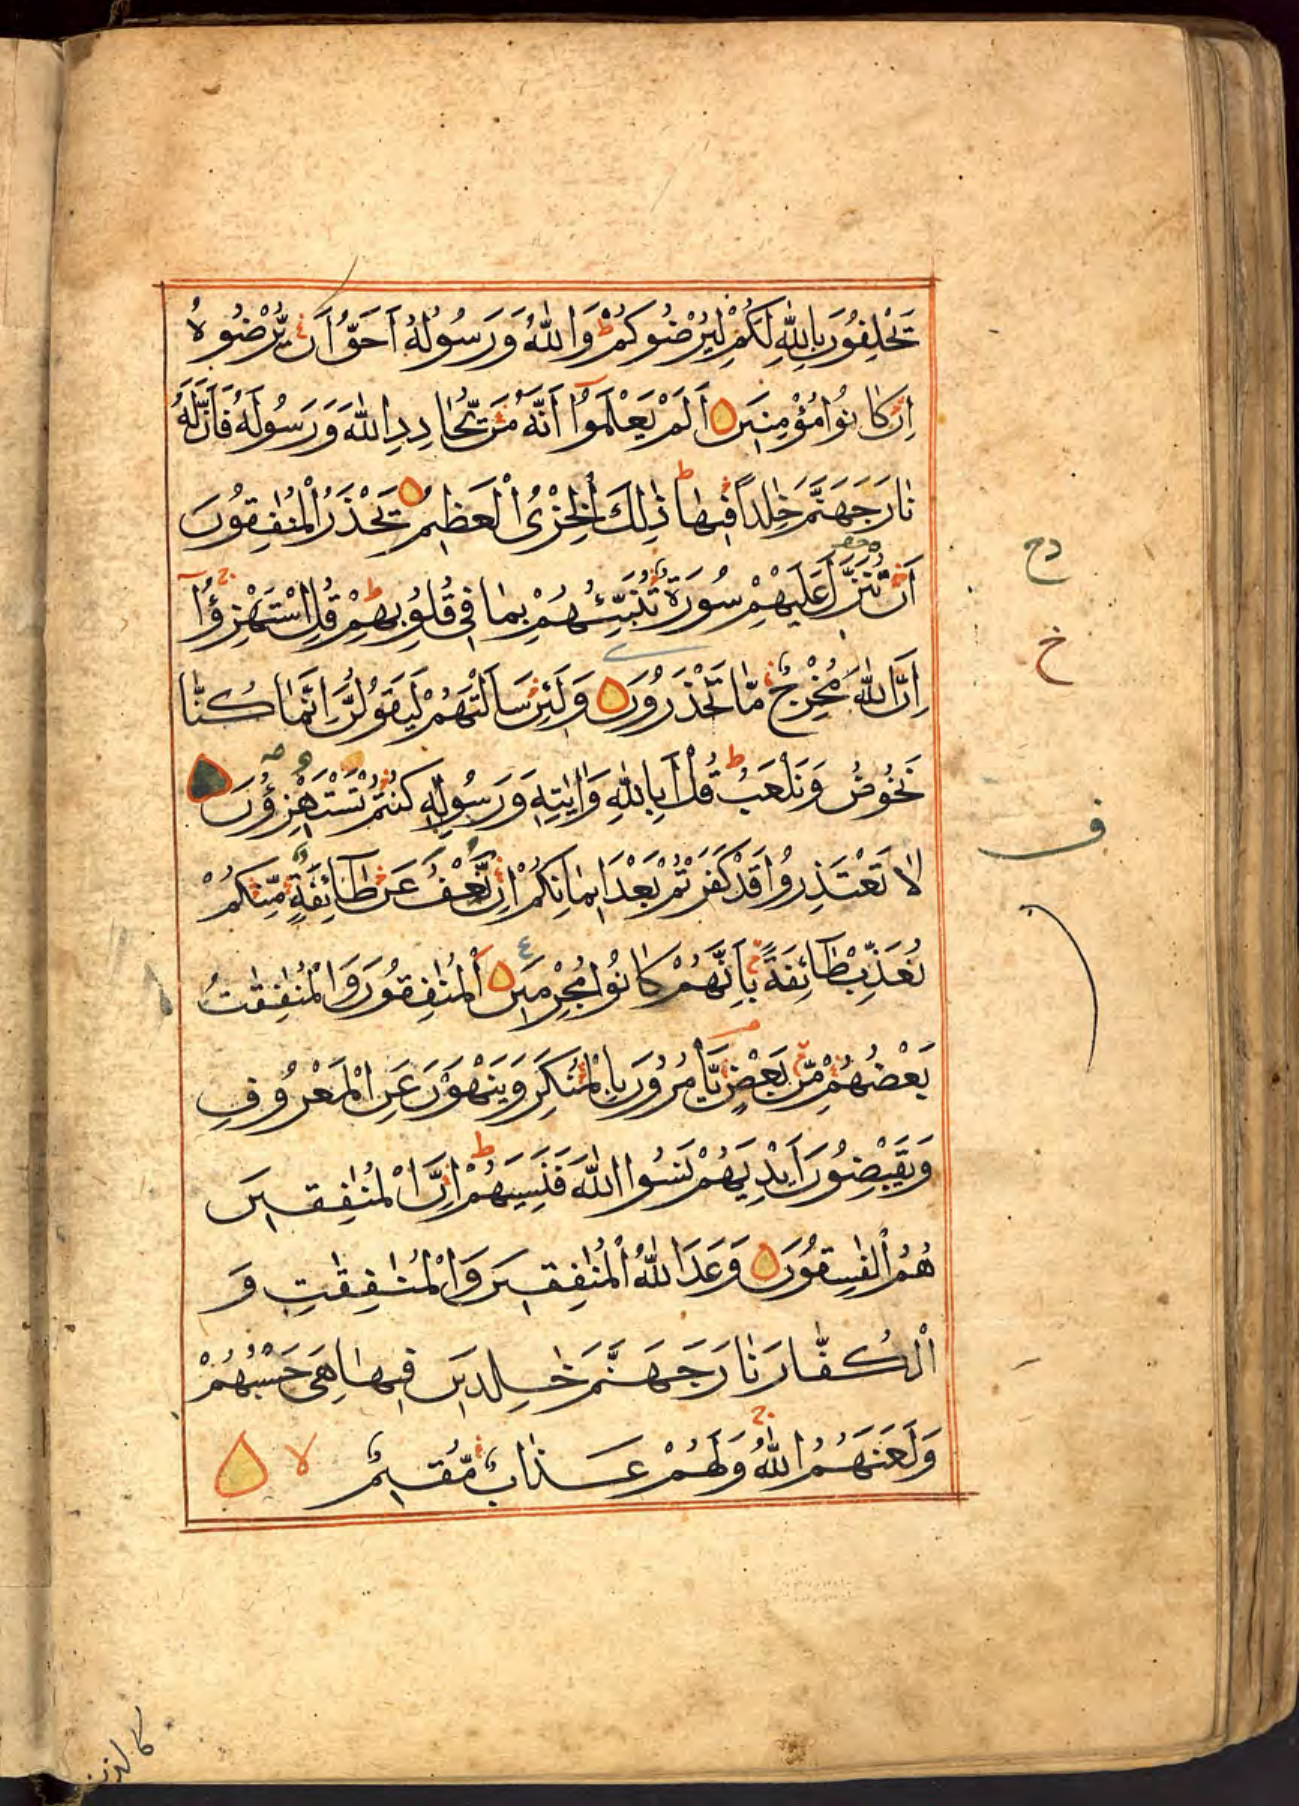 يَحْلِفُونَ بِاللّٰهِ لَكُمْ لِيُرْضُوكُمْ ط وَاللّٰهُ وَرَسُولُهُ اَحَقُّ اَنْ يُّرْضُوهُ
اِنْ كَانُوا مُؤْمِنِينَ اَلَمْ يَعْلَمُوا اَنَّهُ مَنْ يُّحَادِدِ اللّٰهَ وَرَسُولَهُ فَاَنَّ لَهُ
نَارَ جَهَنَّمَ خٰلِدًا فِيهَا ط ذٰلِكَ الْخِزْىُ الْعَظِيمُ يَحْذَرُ الْمُنٰفِقُونَ
اَنْ تُنَزَّلَ عَلَيْهِمْ سُورَةٌ تُنَبِّئُهُمْ بِمَا فِى قُلُوبِهِمْ ط قُلِ اسْتَهْزِؤُا ج
اِنَّ اللّٰهَ مُخْرِجٌ مَّا تَحْذَرُونَ وَلَئِنْ سَاَلْتَهُمْ لَيَقُولُنَّ اِنَّمَا كُنَّا
نَخُوضُ وَنَلْعَبُ ط قُلْ اَبِاللّٰهِ وَاٰيٰتِهِ وَرَسُولِهِ كُنْتُمْ تَسْتَهْزِؤُنَ
لَا تَعْتَذِرُوا قَدْ كَفَرْتُمْ بَعْدَ اِيمَانِكُمْ اِنْ نَّعْفُ عَنْ طَآئِفَةٍ مِّنْكُمْ
نُعَذِّبْ طَآئِفَةً بِاَنَّهُمْ كَانُوا مُجْرِمِينَ ع اَلْمُنٰفِقُونَ وَالْمُنٰفِقٰتُ
بَعْضُهُمْ مِّنْ بَعْضٍ يَّاْمُرُونَ بِالْمُنْكَرِ وَيَنْهَوْنَ عَنِ الْمَعْرُوفِ
وَيَقْبِضُونَ اَيْدِيَهُمْ نَسُوا اللّٰهَ فَنَسِيَهُمْ ط اِنَّ الْمُنٰفِقِينَ
هُمُ الْفٰسِقُونَ وَعَدَ اللّٰهُ الْمُنٰفِقِينَ وَالْمُنٰفِقٰتِ وَ
الْكُفَّارَ نَارَ جَهَنَّمَ خٰلِدِينَ فِيهَا هِىَ حَسْبُهُمْ
وَلَعَنَهُمُ اللّٰهُ ج وَلَهُمْ عَذَابٌ مُّقِيمٌ لا
خ
ف
كالذين